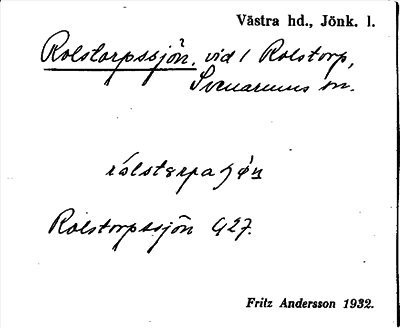 Västra hd., Jönk. l.
Rolstorpssjön, vid 1 Rolstorp,
Svenarums sn.
Rolstorpssjön G27.
Fritz Andersson 1932.